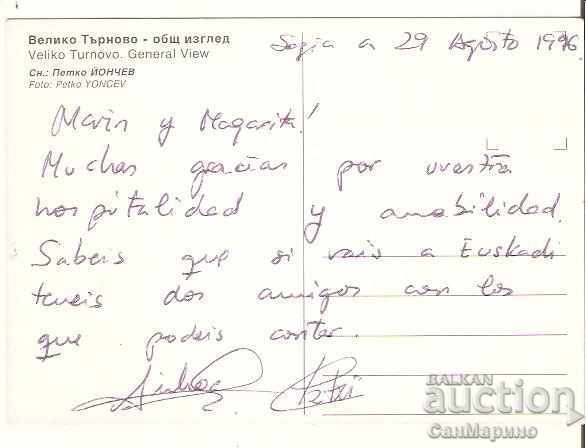 Велико Търново - общ изглед
Veliko Turnovo. General View
Сн.: Петко ЙОНЧЕВ
Foto: Petko YONCEV
Sofia a 29 Agosto 1996.
Marin y Magarita!
Muchas gracias por vuestra
hospitalidad y amabilidad.
Sabeis que si vais a Euskadi
teneis dos amigos con los
que podeis contar.
BALKAN
auction
СанМарино